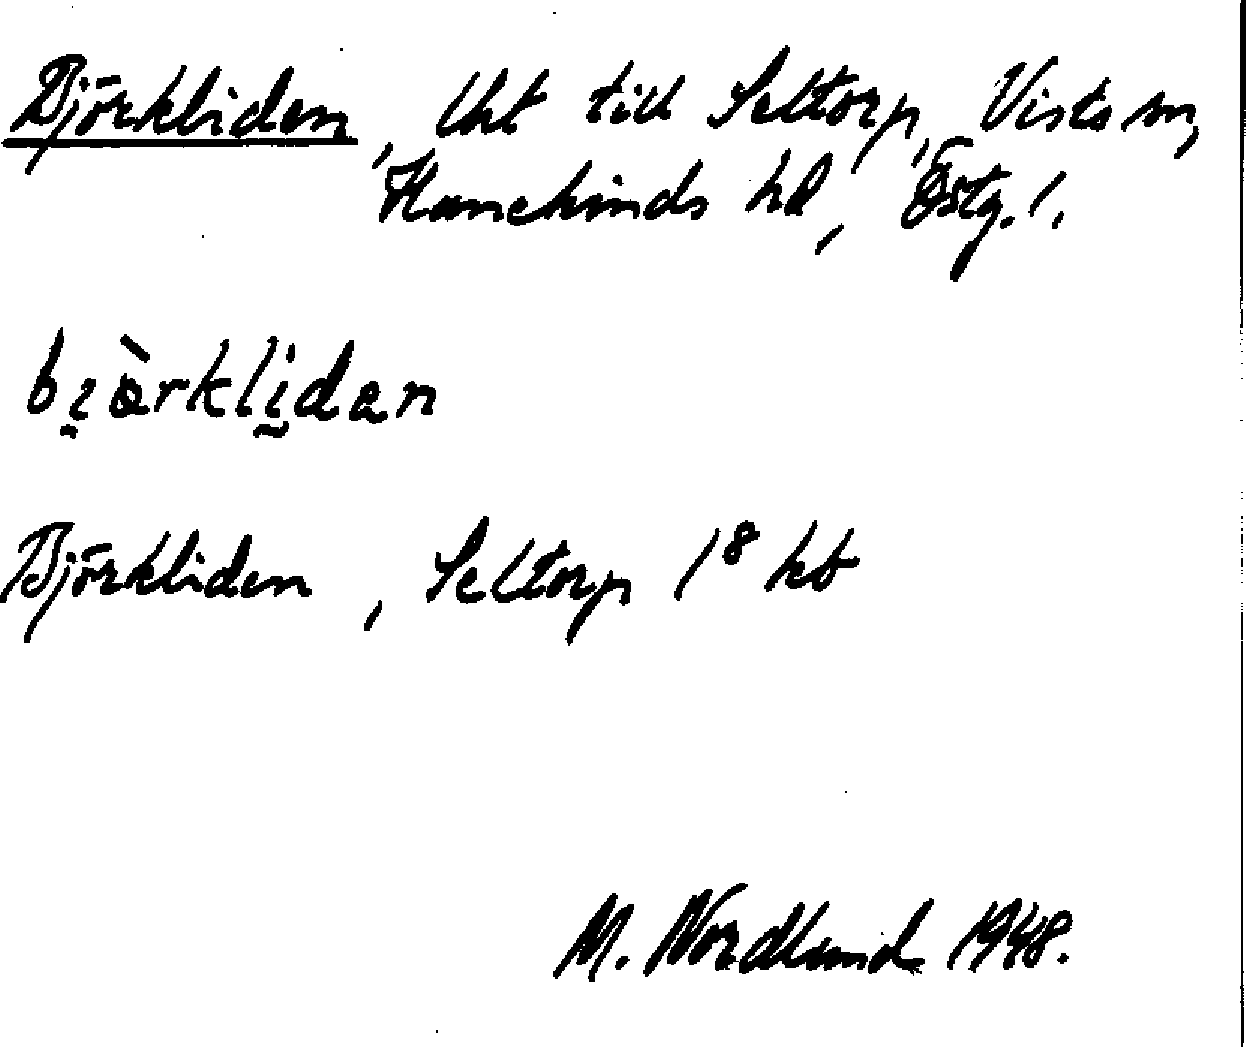 Björkliden, lht till Seltorp, Vists sn,
Hanekinds hd, Östg. l.
bi̯ö̀rkli̮dan
Björkliden, Seltorp 1⁸ kb
M. Nordlund 1948.